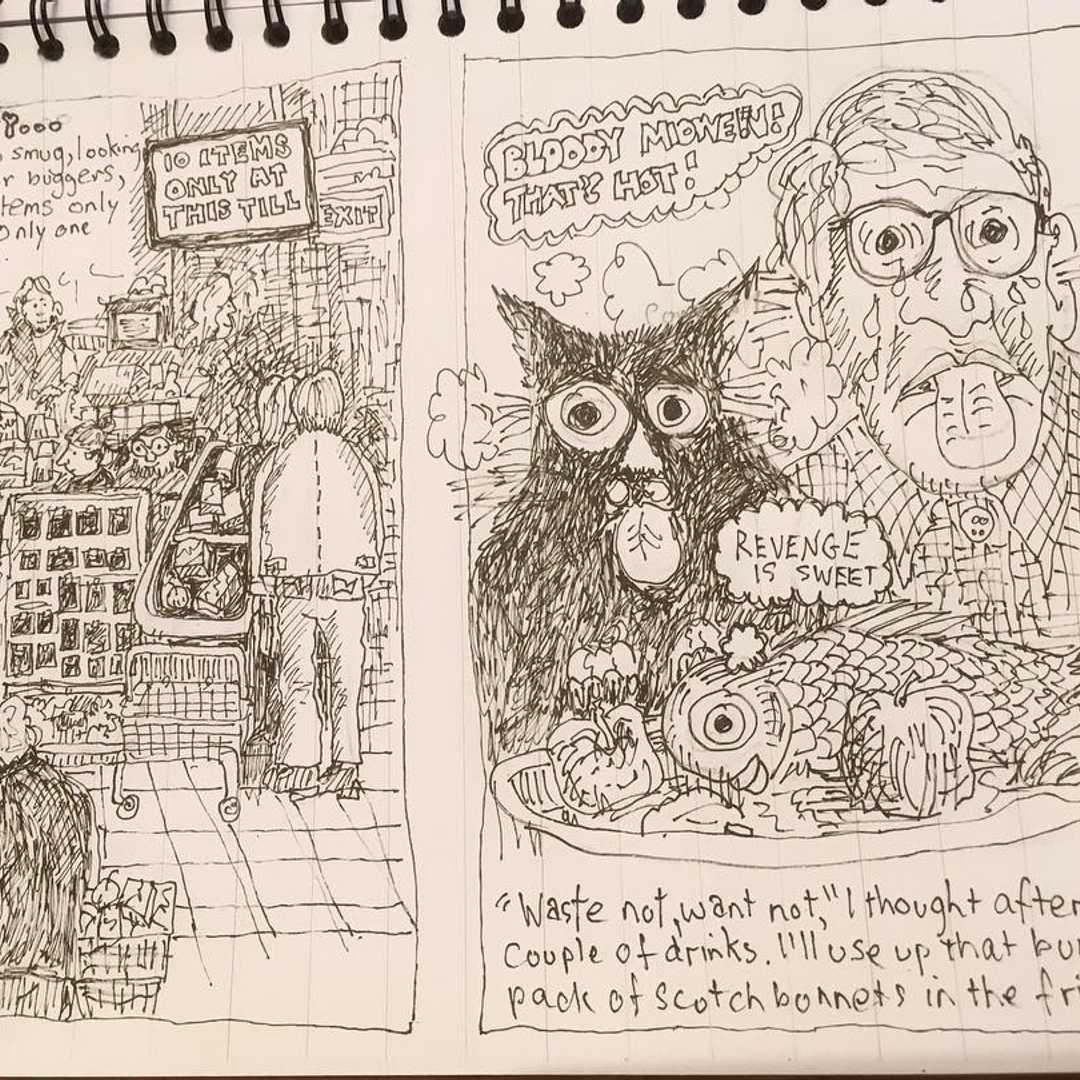 smug, looking
r buggers,
tems only
only one
10 ITEMS
ONLY AT
THIS TILL
EXIT
BLOODY MIOWEIN!
THAT'S HOT!
REVENGE
IS SWEET
"Waste not, want not," I thought after
couple of drinks. I'll use up that bu
pack of scotch bonnets in the fri